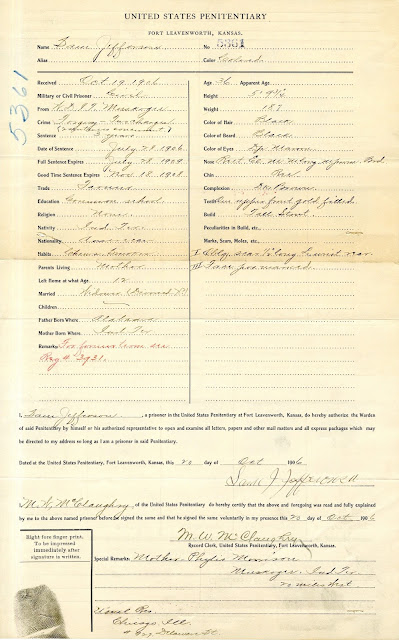 UNITED STATES PENITENTIARY
FORT LEAVENWORTH, KANSAS.
Name Sam Jefferson No. 5361
Alias Color Colored
5361
Received Oct 19, 1906
Military or Civil Prisoner Civil
From Muskogee
Crime Forgery
Sentence 3 years
Date of Sentence July 28 1906
Full Sentence Expires July 28 1909
Good Time Sentence Expires Nov 18, 1908
Trade Farmer
Education Common school
Religion None
Nativity Ind Ter
Nationality American
Habits
Parents Living Mother
Left Home at what Age 12
Married
Children
Father Born Where Alabama
Mother Born Where Ind Ter
Remarks For former term see
Reg # 2921.
Age 36 Apparent Age
Height 5' 9½
Weight 187
Color of Hair Black
Color of Beard Black
Color of Eyes Dk Maroon
Nose
Chin
Complexion Dk Brown
Teeth upper front gold filled
Build Tall Stout
Peculiarities in Build, etc.
Marks, Scars, Moles, etc.
I Oblq scar long wrist rear
III Face pockmarked
I, Sam Jefferson, a prisoner in the United States Penitentiary at Fort Leavenworth, Kansas, do hereby authorize the Warden
of said Penitentiary by himself or his authorized representative to open and examine all letters, papers and other mail matters and all express packages which may
be directed to my address so long as I am a prisoner in said Penitentiary.
Dated at the United States Penitentiary, Fort Leavenworth, Kansas, this 20 day of Oct 1906
Sam J Jefferson
M. W. McClaughry, of the United States Penitentiary do hereby certify that the above and foregoing was read and fully explained
by me to the above named prisoner before he signed the same and that he signed the same voluntarily in my presence this 20 day of Oct 1906
M. W. McClaughry
Record Clerk, United States Penitentiary, Fort Leavenworth, Kansas.
Right fore finger print.
To be impressed
immediately after
signature is written.
Special Remarks: Mother Phylis Morrison
Muskogee, Ind Ter
20 miles West
Chicago, Ill.